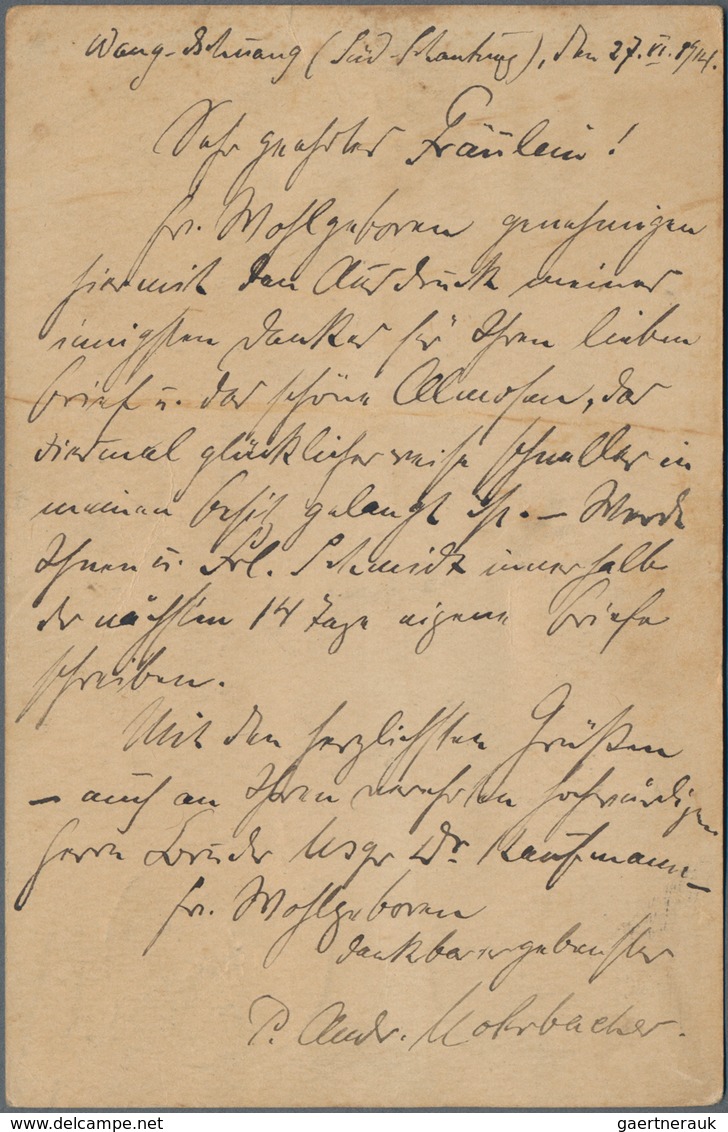 Wang-dschuang (Süd-Schantung), den 27. VI. 1914.
Sehr geehrtes Fräulein!
Ew. Wohlgeboren genehmigen
hiermit den Ausdruck meines
innigsten Dankes für Ihren lieben
Brief u. das schöne Almosen, das
diesmal glücklicherweise schneller in
meinen Besitz gelangt ist. – Werde
Ihnen u. Frl. Schmidt innerhalb
der nächsten 14 Tage eigene Briefe
schreiben.
Mit den herzlichsten Grüßen
– auch an Ihren verehrten hochwürdigen
Herrn Bruder Msgr Dr. Kaufmann –
Ew. Wohlgeboren
dankbarergebenster
P. Andr. Mohrbacher.
gaertnerauk